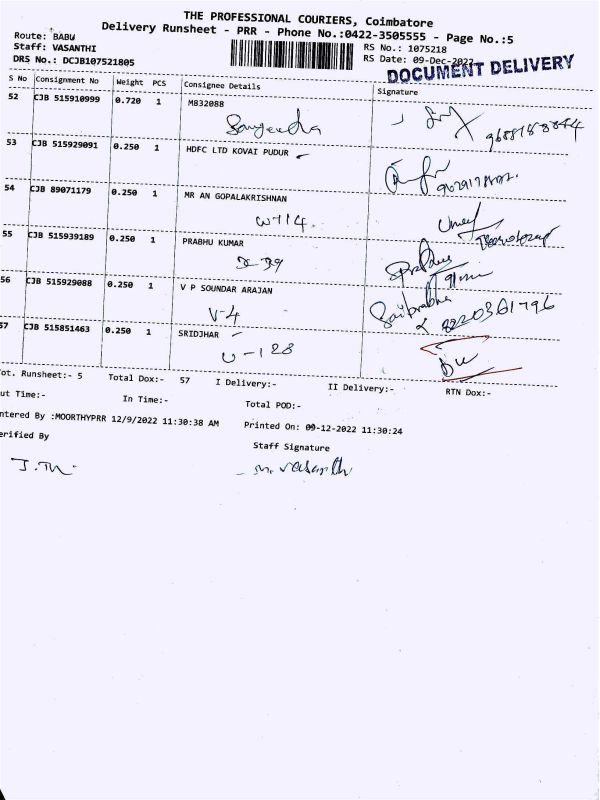 THE PROFESSIONAL COURIERS, Coimbatore
Delivery Runsheet - PRR - Phone No.:0422-3505555 - Page No.:5
Route: BABU
RS No.: 1075218
Staff: VASANTHI
RS Date: 09-Dec-2022
DRS No.: DCJB107521805
DOCUMENT DELIVERY
S No Consignment No Weight PCS Consignee Details Signature
52 CJB 515910999 0.720 1 M832088
Sangeetha
53 CJB 515929091 0.250 1 HDFC LTD KOVAI PUDUR
54 CJB 89071179 0.250 1 MR AN GOPALAKRISHNAN
W-114.
55 CJB 515939189 0.250 1 PRABHU KUMAR
X-39
56 CJB 515929088 0.250 1 V P SOUNDAR ARAJAN
V-4 8220361796
57 CJB 515851463 0.250 1 SRIDJHAR
U-128
ot. Runsheet:- 5 Total Dox:- 57 I Delivery:- II Delivery:- RTN Dox:-
ut Time:- In Time:- Total POD:-
ntered By :MOORTHYPRR 12/9/2022 11:30:38 AM Printed On: 09-12-2022 11:30:24
erified By Staff Signature
M. Vasanthi